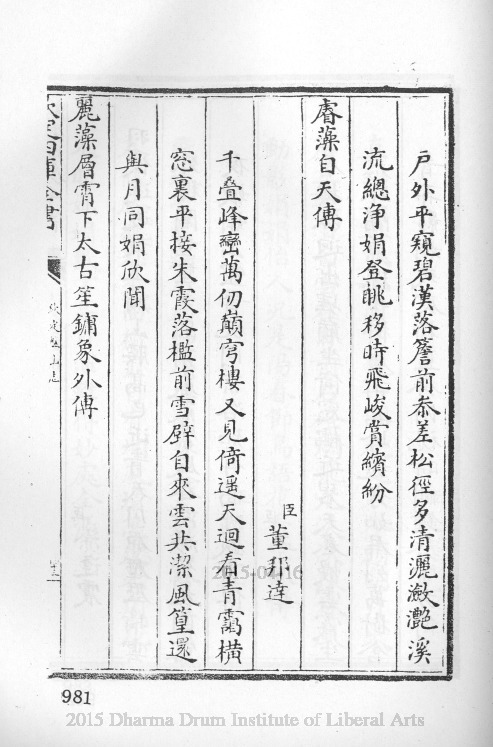 戶外平窺碧漢落簷前叅差松徑多清灑瀲灔溪
流總浄娟登眺移時飛峻賞繽紛
睿藻自天傳
臣董邦達
千叠峰巒萬仞巔穹樓又見倚遥天迴看青靄橫
窓裏平接朱霞落檻前雪壁自來雲共潔風篁還
與月同娟欣聞
麗藻層霄下太古笙鏞象外傳
欽定四庫全書
欽定盤山志
2015-04-16
981
2015 Dharma Drum Institute of Liberal Arts